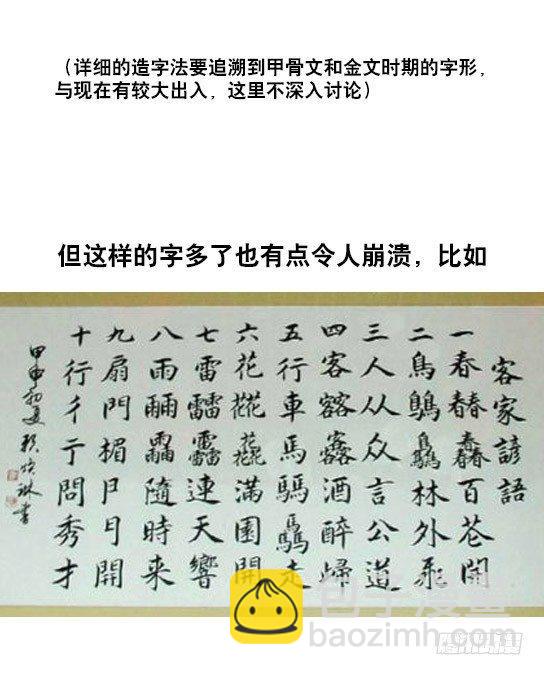 （详细的造字法要追溯到甲骨文和金文时期的字形，
与现在有较大出入，这里不深入讨论）
但这样的字多了也有点令人崩溃，比如
客家諺語
一春百花開
二鳥林外飛
三人从众言公道
四客酒醉歸
五行車馬騳驫走
六花滿園開
七雷連天響
八雨隨時来
九扇門楣開
十行彳亍問秀才
甲申初夏琳書
包子漫畫
baozimh.com